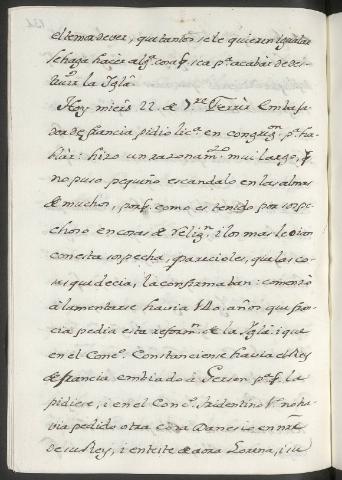 el temor de ver, que tantos se le quieren igualar
se haga hacer alg.ª cosa q̃ sea p.ª acabar de des-
truír la Igl.ª
Hoy mierˢ 22. de 7.ʳᵉ Ferrìr Embaxa-
dor de francia pidio lic.ª en congreg.ⁿ p.ª ha-
blàr: hizo un razonam.ᵗᵒ mui largo, q̃
no puso pequeño escandalo en las almas
de muchos, porq̃ como es tenido por sospe-
choso en cosas de relig.ⁿ i los mas le oian
con esta sospecha, pareciòles, que las co-
sas que decia, la confirmaban: comenzò
à lamentarse havia 140. años que fran-
cia pedia esta reform.ⁿ de la Igl.ª i que
en el Conc.º Constanciense havia el Rey
de francia embiado à Gerson p.ª q̃ la
pidiese, i en el Conc.º Tridentino 1.º no ha-
via pedido otra cosa Danesio en nr̃e
de su Rey, i en este de aora Lorena, i su